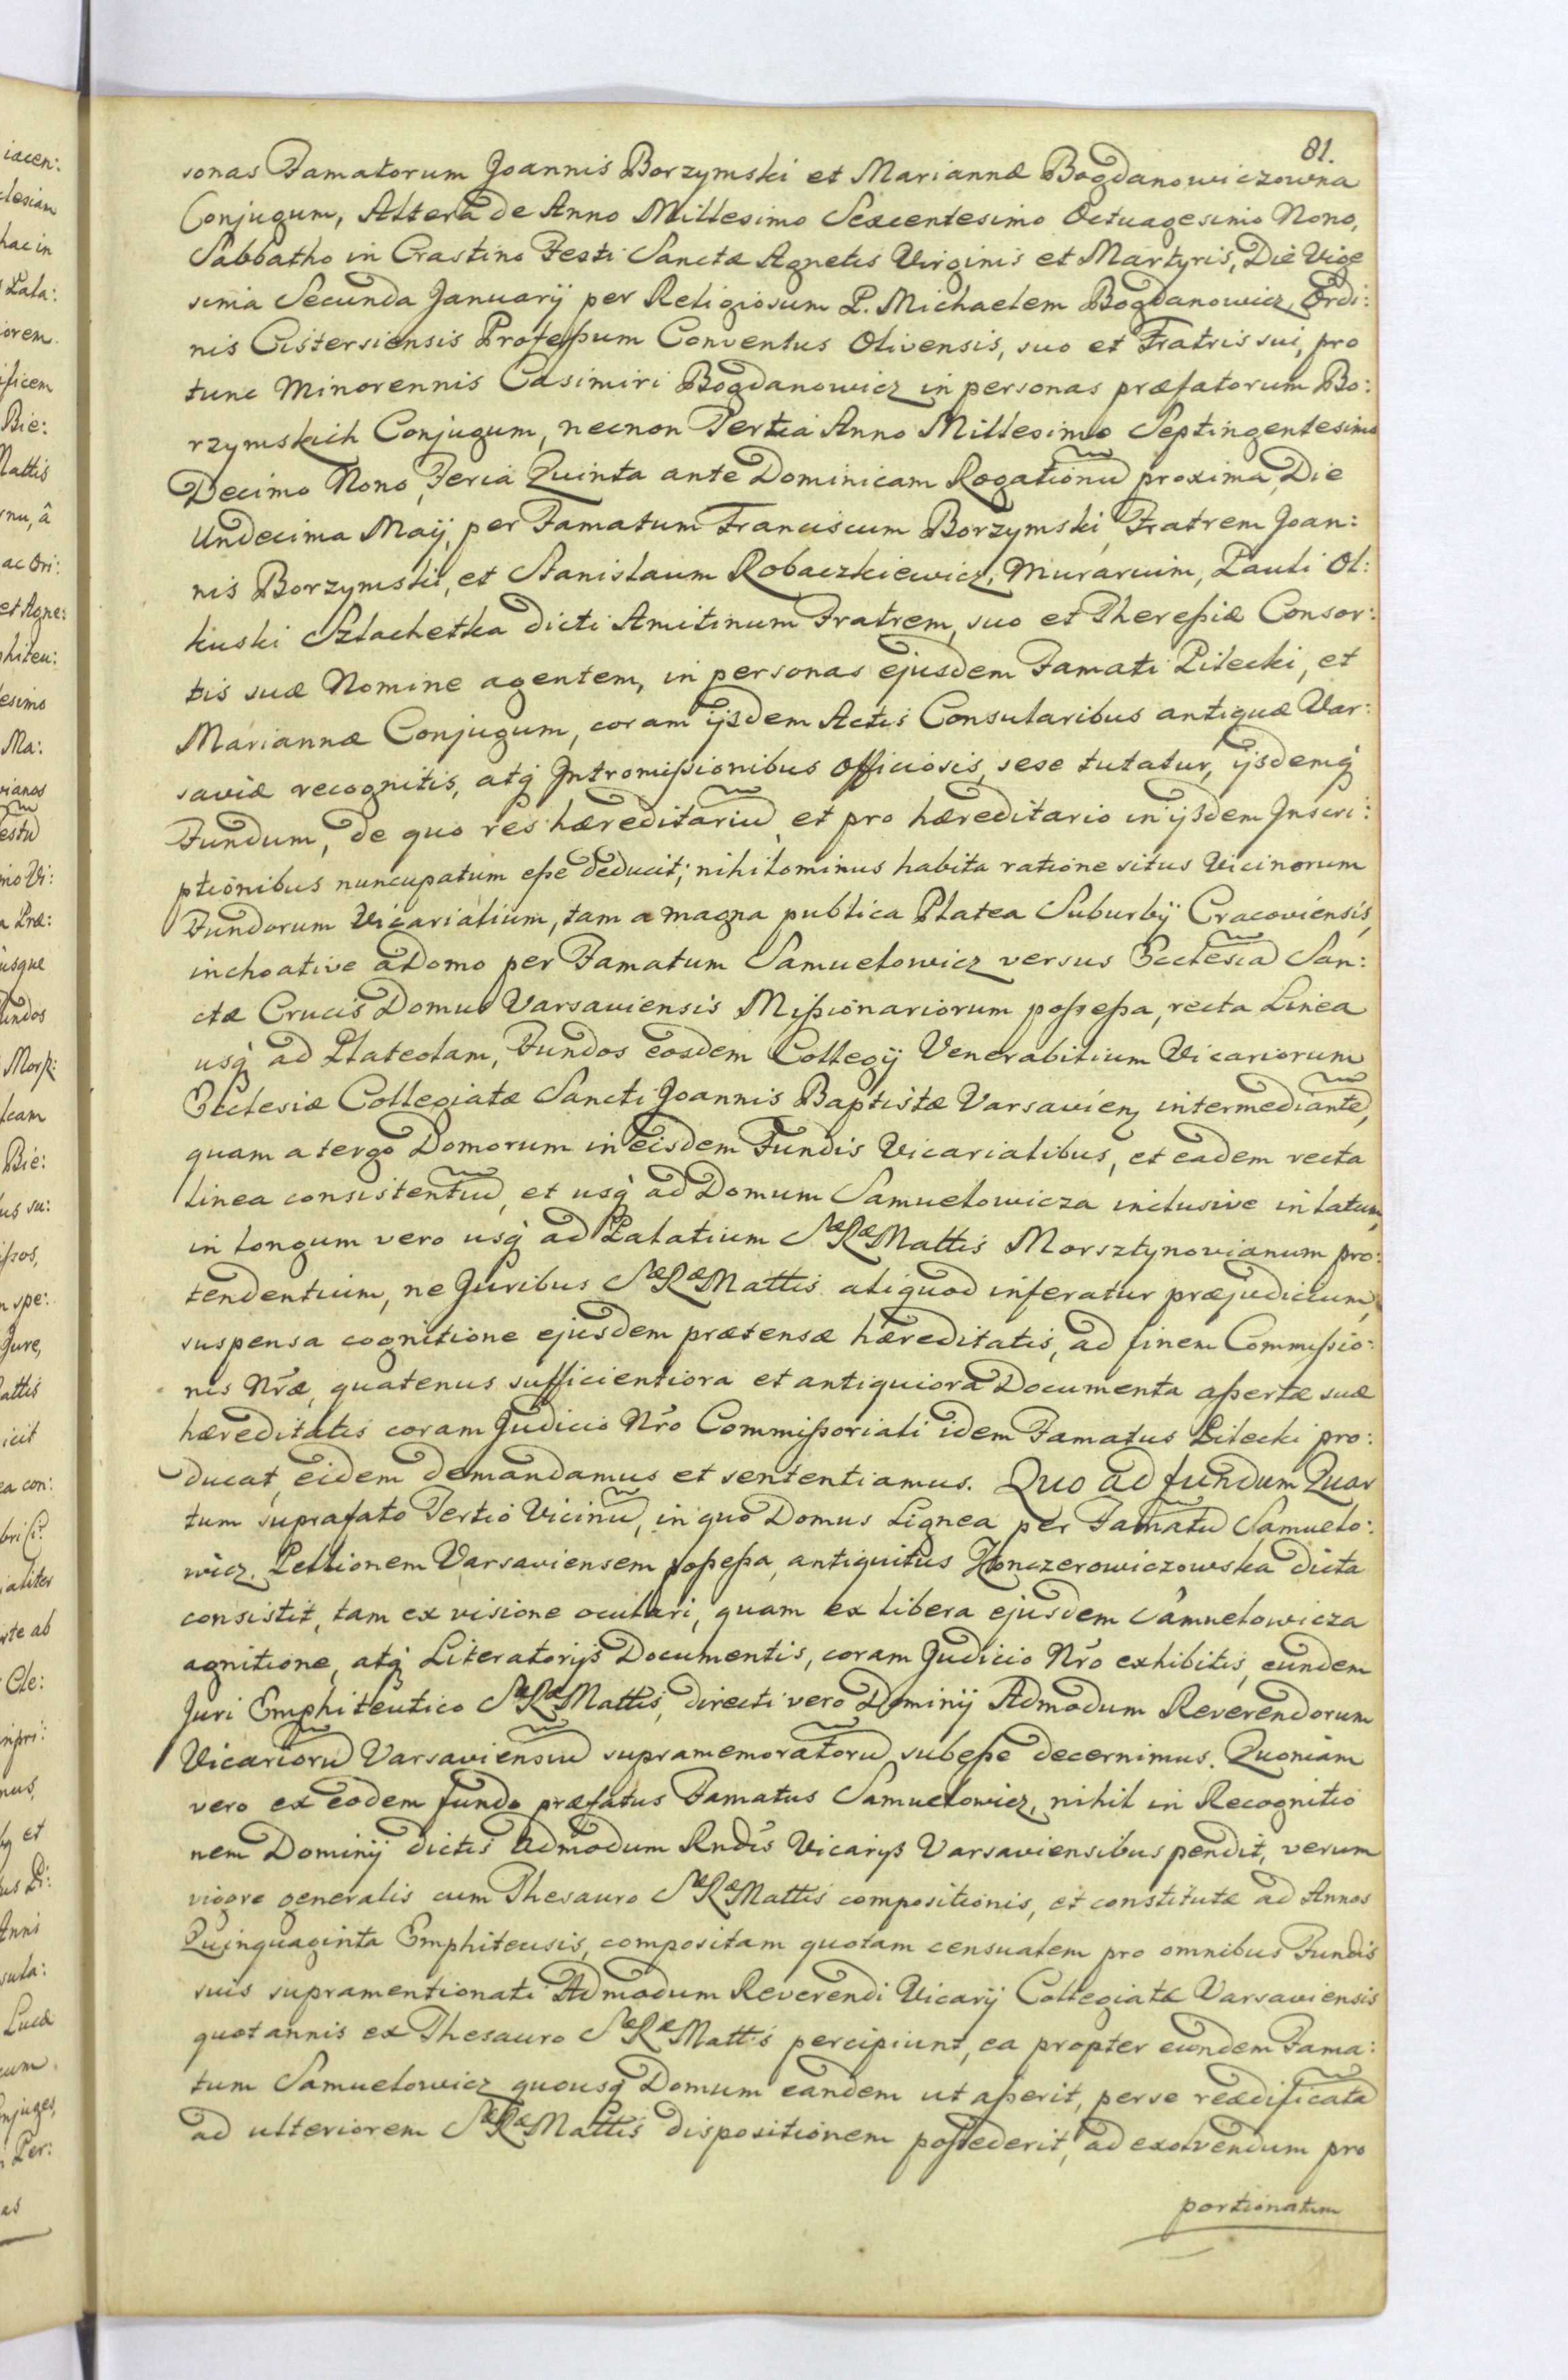 81.
sonas Famatorum Joannis Borzymski et Mariannæ Bogdanowiczowna
Conjugum, Altera de Anno Millesimo Sexcentesimo Octuagesimo Nono,
Sabbatho in Crastino Festi Sanctæ Agnetis Virginis et Martyris, Die Vige
sima Secunda Januarij per Religiosum P. Michaelem Bogdanowicz, Ordi:
nis Cistersiensis Profeßum Conventus Olivensis, suo et Fratris sui, pro
tunc Minorennis Casimiri Bogdanowicz in personas præfatorum Bo:
rzymskich Conjugum, necnon Tertia Anno Millesimo Septingentesimo
Decimo Nono, Feria Quinta ante Dominicam Rogationũ proxima, Die
Undecima Maij, per Famatum Franciscum Borzymski, Fratrem Joan:
nis Borzymski, et Stanislaum Robaczkiewicz, Murarium, Pauli Ol:
kuski Szlachetka dicti Amitinum Fratrem, suo et Thereßiæ Consor:
tis suæ Nomine agentem, in personas ejusdem Famati Pilecki, et
Mariannæ Conjugum, coram ijsdem Actis Consularibus antiquæ Var:
saviæ recognitis, atq́ Intromißionibus officiosis, sese tutatur, ijsdemq́
Fundum, de quo res hæreditariũ, et pro hæreditario in ijsdem Inscri:
ptionibus nuncupatum eße deducit; nihilominus habita ratione situs Vicinorum
Fundorum Vicarialium, tam a magna publica Platea Suburbij Cracoviensis,
inchoative a Domo per Famatum Samuelowicz versus Ecclesiã San:
ctæ Crucis Domus Varsaviensis Mißionariorum poßeßa, recta Linea
usq́ ad Plateolam, Fundos eosdem Collegij Venerabilium Vicariorum
Ecclesiæ Collegiatæ Sancti Joannis Baptistæ Varsavien, intermediantẽ,
quam a tergo Domorum in eisdem Fundis Vicarialibus, et eadem recta
linea consistentiũ, et usq́ ad Domum Samuelowicza inclusive in latum,
in longum vero usq́ ad Palatium SæRæMattis Morsztynovianum pro:
tendentium, ne Juribus SæRæMattis aliquod inferatur præjudicium,
suspensa cognitione ejusdem prætensæ hæreditatis, ad finem Commißio:
nis Nr̃æ, quatenus sufficientiora et antiquiora Documenta aßertæ suæ
hæreditatis coram Judicio Nr̃o Commißoriali idem Famatus Pilecki pro:
ducat, eidem demandamus et sententiamus. Quo ad fundum Quar
tum suprafato Tertio Vicinũ, in quo Domus Lignea per Famatũ Samuelo:
wicz, Pellionem Varsaviensem poßeßa, antiquitus Honczerowiczowska dicta
consistit, tam ex visione oculari, quam ex libera ejusdem Samuelowicza
agnitione, atq́ Literatorijs Documentis, coram Judicio Nr̃o exhibitis, eundem
Juri Emphiteutico SæRæMattis, directi vero Dominij Admodum Reverendorum
Vicariorũ Varsaviensiũ supramemoratorũ subeße decernimus. Quoniam
vero ex eodem fundo præfatus Famatus Samuelowicz, nihil in Recognitio
nem Dominij dictis Admodum Rndis Vicarijs Varsaviensibus pendit, verum
vigore generalis cum Thesauro SæRæMattis compositionis, et constitutæ ad Annos
Quinquaginta Emphiteusis, compositam quotam censualem pro omnibus Fundis
suis supramentionati Admodum Reverendi Vicarij Collegiatæ Varsaviensis
quotannis ex Thesauro SæRæMattis percipiunt, ea propter eundem Fama:
tum Samuelowicz quousq́ Domum eandem ut aßerit, per se reædificatã
ad ulteriorem SæRæMattis dispositionem poßederit, ad exolvendum pro
portionatum
iacen:
clesiam
hac in
Pala:
iorem
ificem
Bie:
Mattis
rnu, â
ac Ori:
et Agne:
phiteu:
esimo
Ma:
vianos
estũ
mo Vi:
a Præ:
usque
undos
Morß:
team
Bie:
us su:
ißos,
n spe:
Jure,
attis
icit
ea con:
ialiter
rte ab
Cle:
inpri:
mus,
by et
us Di:
Anni
sula:
Lucæ
cum
njuges,
Per:
as